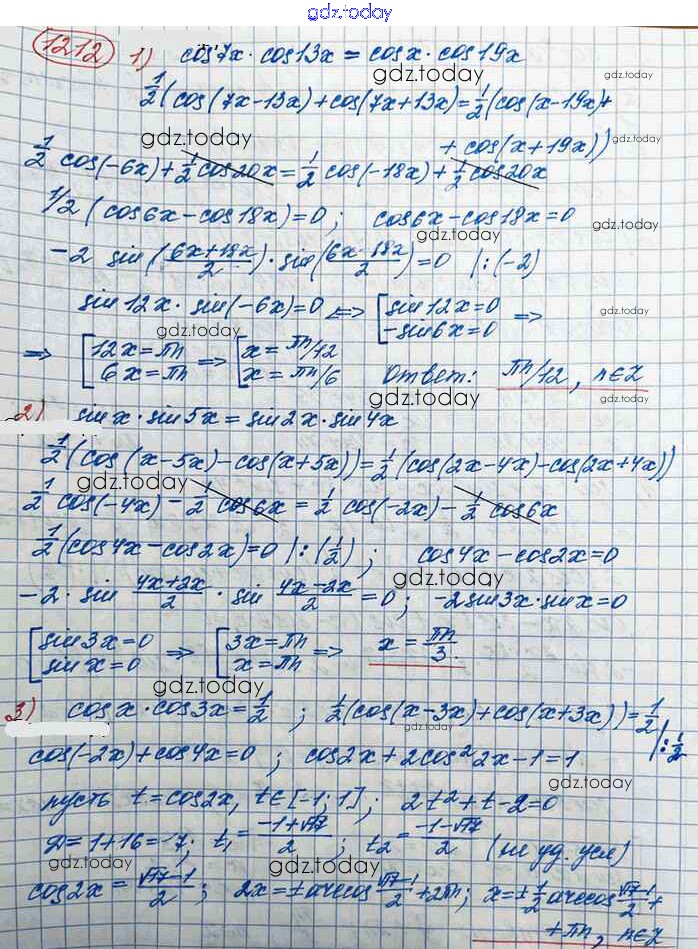 gdz.today
1212 1) cos7x · cos13x = cosx · cos19x
gdz.today
1/2(cos(7x-13x)+cos(7x+13x)=1/2(cos(x-19x)+
gdz.today
+ cos(x+19x))
1/2 cos(-6x)+1/2cos20x=1/2 cos(-18x)+1/2cos20x
gdz.today
1/2(cos6x-cos18x)=0; cos6x-cos18x=0
gdz.today
gdz.today
-2 sin(6x+18x/2)·sin(6x-18x/2)=0 |:(-2)
gdz.today
sin12x·sin(-6x)=0 <=> [sin12x=0 -sin6x=0 =>
gdz.today
gdz.today
=> [12x=πn 6x=πn => [x=πn/12 x=πn/6 Ответ: πn/12, n∈Z
gdz.today
gdz.today
2) sinx·sin5x=sin2x·sin4x
1/2(cos(x-5x)-cos(x+5x))=1/2(cos(2x-4x)-cos(2x+4x))
gdz.today
gdz.today
1/2 cos(-4x)-1/2cos6x=1/2 cos(-2x)-1/2cos6x
1/2(cos4x-cos2x)=0 |:(1/2); cos4x-cos2x=0
gdz.today
-2·sin 4x+2x/2 · sin 4x-2x/2 =0; -2sin3x·sinx=0
[sin3x=0 sinx=0 => [3x=πn x=πn => x=πn/3.
gdz.today
gdz.today
3) cosx·cos3x=1/2; 1/2(cos(x-3x)+cos(x+3x))=1/2 |:1/2
gdz.today
cos(-2x)+cos4x=0; cos2x+2cos²2x-1=1
gdz.today
пусть t=cos2x, t∈[-1;1]; 2t²+t-2=0
D=1+16=17; t₁=-1+√17/2; t₂=-1-√17/2 (не уд. усл)
gdz.today
gdz.today
cos2x=√17-1/2; 2x=±arccos√17-1/2+2πn; x=±1/2arccos√17-1/2+
gdz.today
+πn, n∈Z